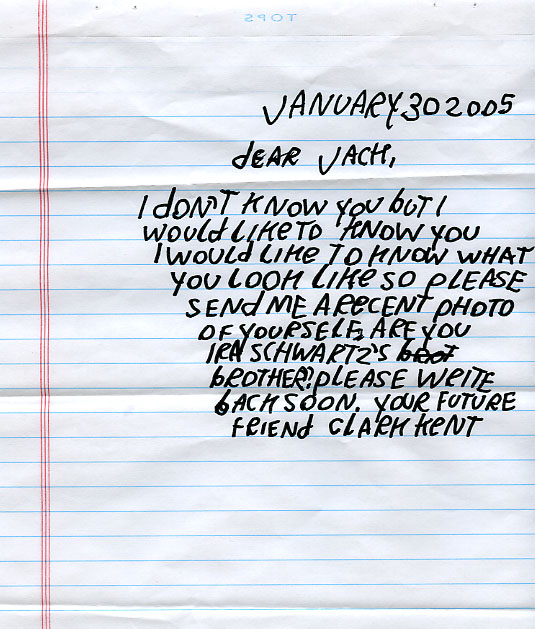 TOPS
JANUARY 30 2005
dEAR JACK,
I dON'T KNOW YOU bUT I
WOULd LIKE TO KNOW YOU
I WOULd LIKE TO KNOW WHAT
YOU LOOK LIKE SO PLEASE
SENd ME A RECENT PHOTO
OF YOURSELF, ARE YOU
IRA SCHWARTZ'S
bROTHER? PLEASE WRITE
bACK SOON. YOUR FUTURE
FRIENd CLARK KENT